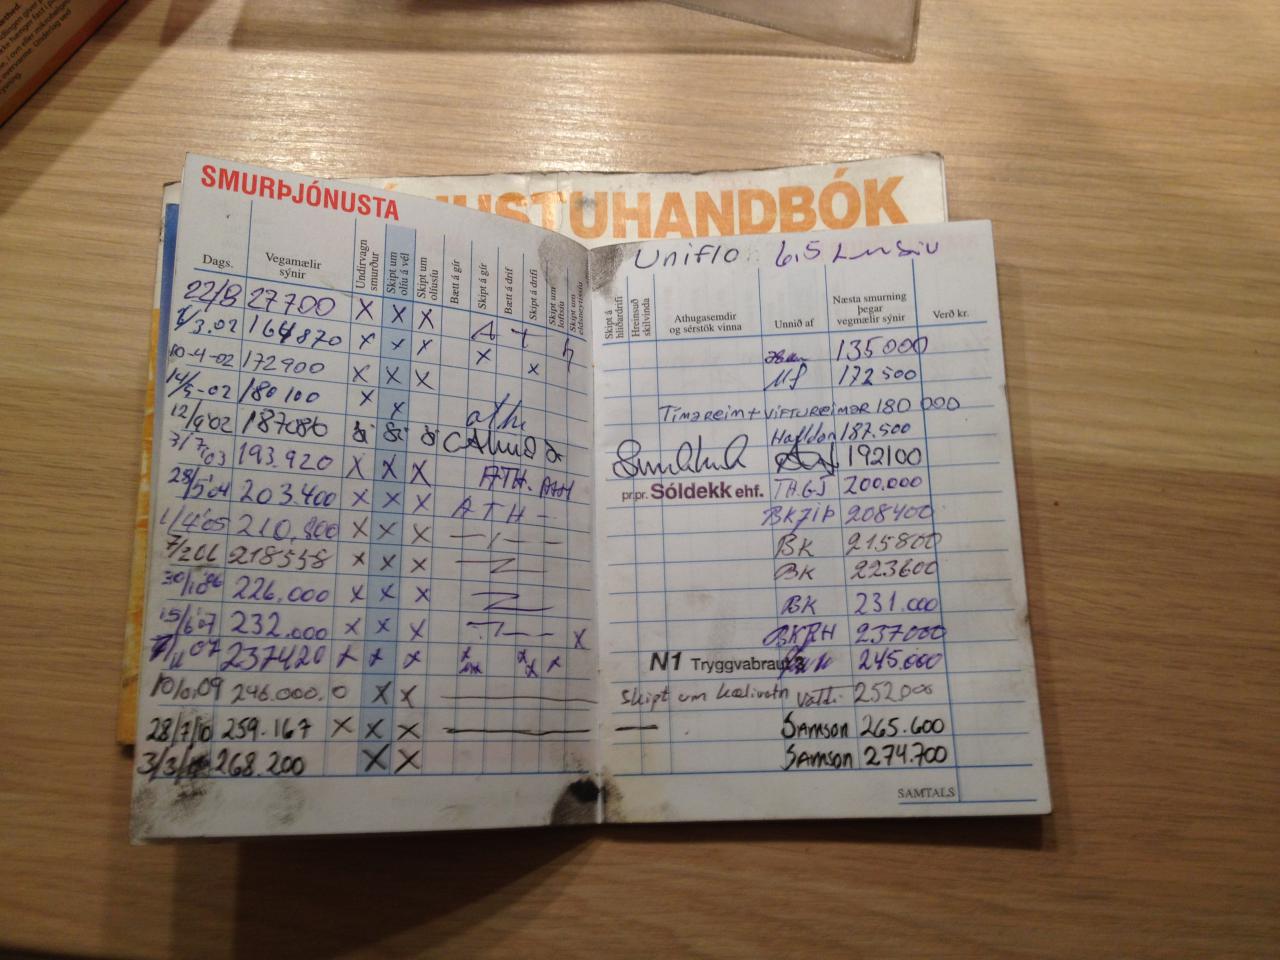 SMURÞJÓNUSTA
USTUHANDBÓK
Uniflo 6,5
Dags.
Vegamælir sýnir
Undirvagn smurður
Skipt um olíu á vél
Skipt um olíusíu
Bætt á gír
Skipt á gír
Bætt á drif
Skipt á drifi
Skipt um loftsíu
Skipt um eldsneytissíu
Skipt á hliðardrifi
Hreinsuð skilvinda
Athugasemdir og sérstök vinna
Unnið af
Næsta smurning þegar vegmælir sýnir
Verð kr.
22/8 27700 X X X 135000
1/3.02 164870 X X X A T h 172500
10-4-02 172900 X X X X X Tímareim + viftureimar 180 000
14/5-02 180100 X X ath. Halldór 187.500
12/9'02 187086 192100
3/7'03 193.920 X X X ATH. ATH pr.pr. Sóldekk ehf. TH.G.J 200.000
28/5'04 203.400 X X X ATH - 208400
1/4'05 210,800 X X X BK 215800
7/206 218558 X X X BK 223600
30/10 06 226.000 X X X BK 231.000
15/6'07 232.000 X X X X 237000
7/11 07 237420 X X X X X X N1 Tryggvabraut 245.000
10/01.09 246.000. O X X Skipt um kælivatn Valli 252000
28/7/10 259.167 X X X Samson 265.600
3/3/ 268.200 X X Samson 274.700
SAMTALS